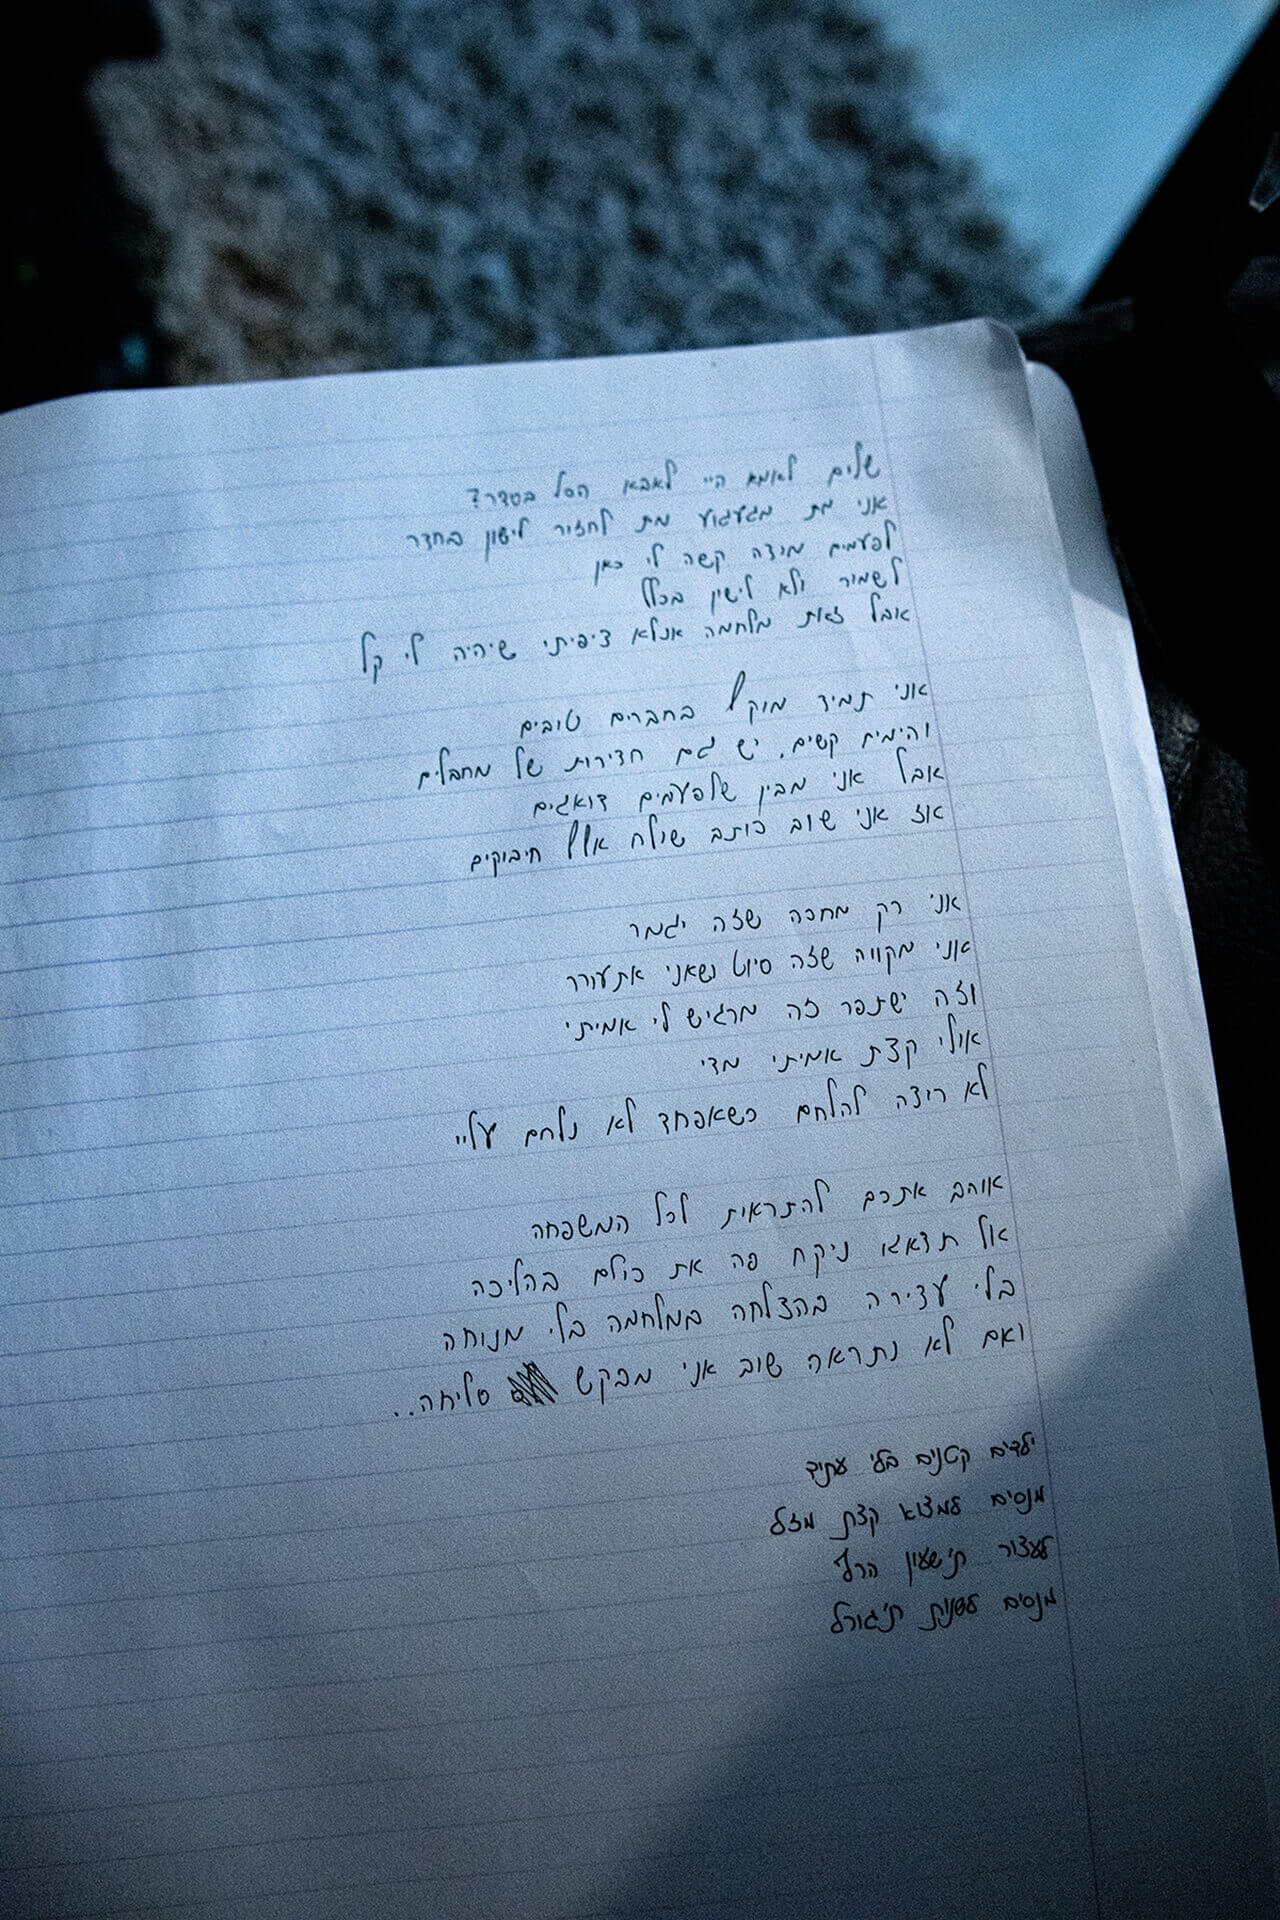 שלום לאמא היי לאבא הכל בסדר?
אני מת מגעגוע מת לחזור לישון בחדר
לפעמים מידה קשה לי כאן
לשמור ולא לישון בכלל
אבל זאת מלחמה אנלא ציפיתי שיהיה לי קל
אני תמיד מוקף בחברים טובים
והימים קשים, יש גם חדירות של מחבלים
אבל אני מבין שלפעמים דואגים
אז אני שוב כותב שולח אלף חיבוקים
אני רק מחכה שזה יגמר
אני מקווה שזה סיוט ושאני אתעורר
וזה ישתפר זה מרגיש לי אמיתי
אולי קצת אמיתי מדי
לא רוצה להלחם כשאפחד לא נלחם עליי
אוהב אתכם להתראות לכל המשפחה
אל תדאגו ניקח פה את כולם בהליכה
בלי עצירה בהצלחה במלחמה בלי מנוחה
ואם לא נתראה שוב אני מבקש סליחה..
ילדים קטנים בלי עתיד
מנסים למצוא קצת מזל
לעצור ת'שעון הרף
מנסים לשנות ת'גורל